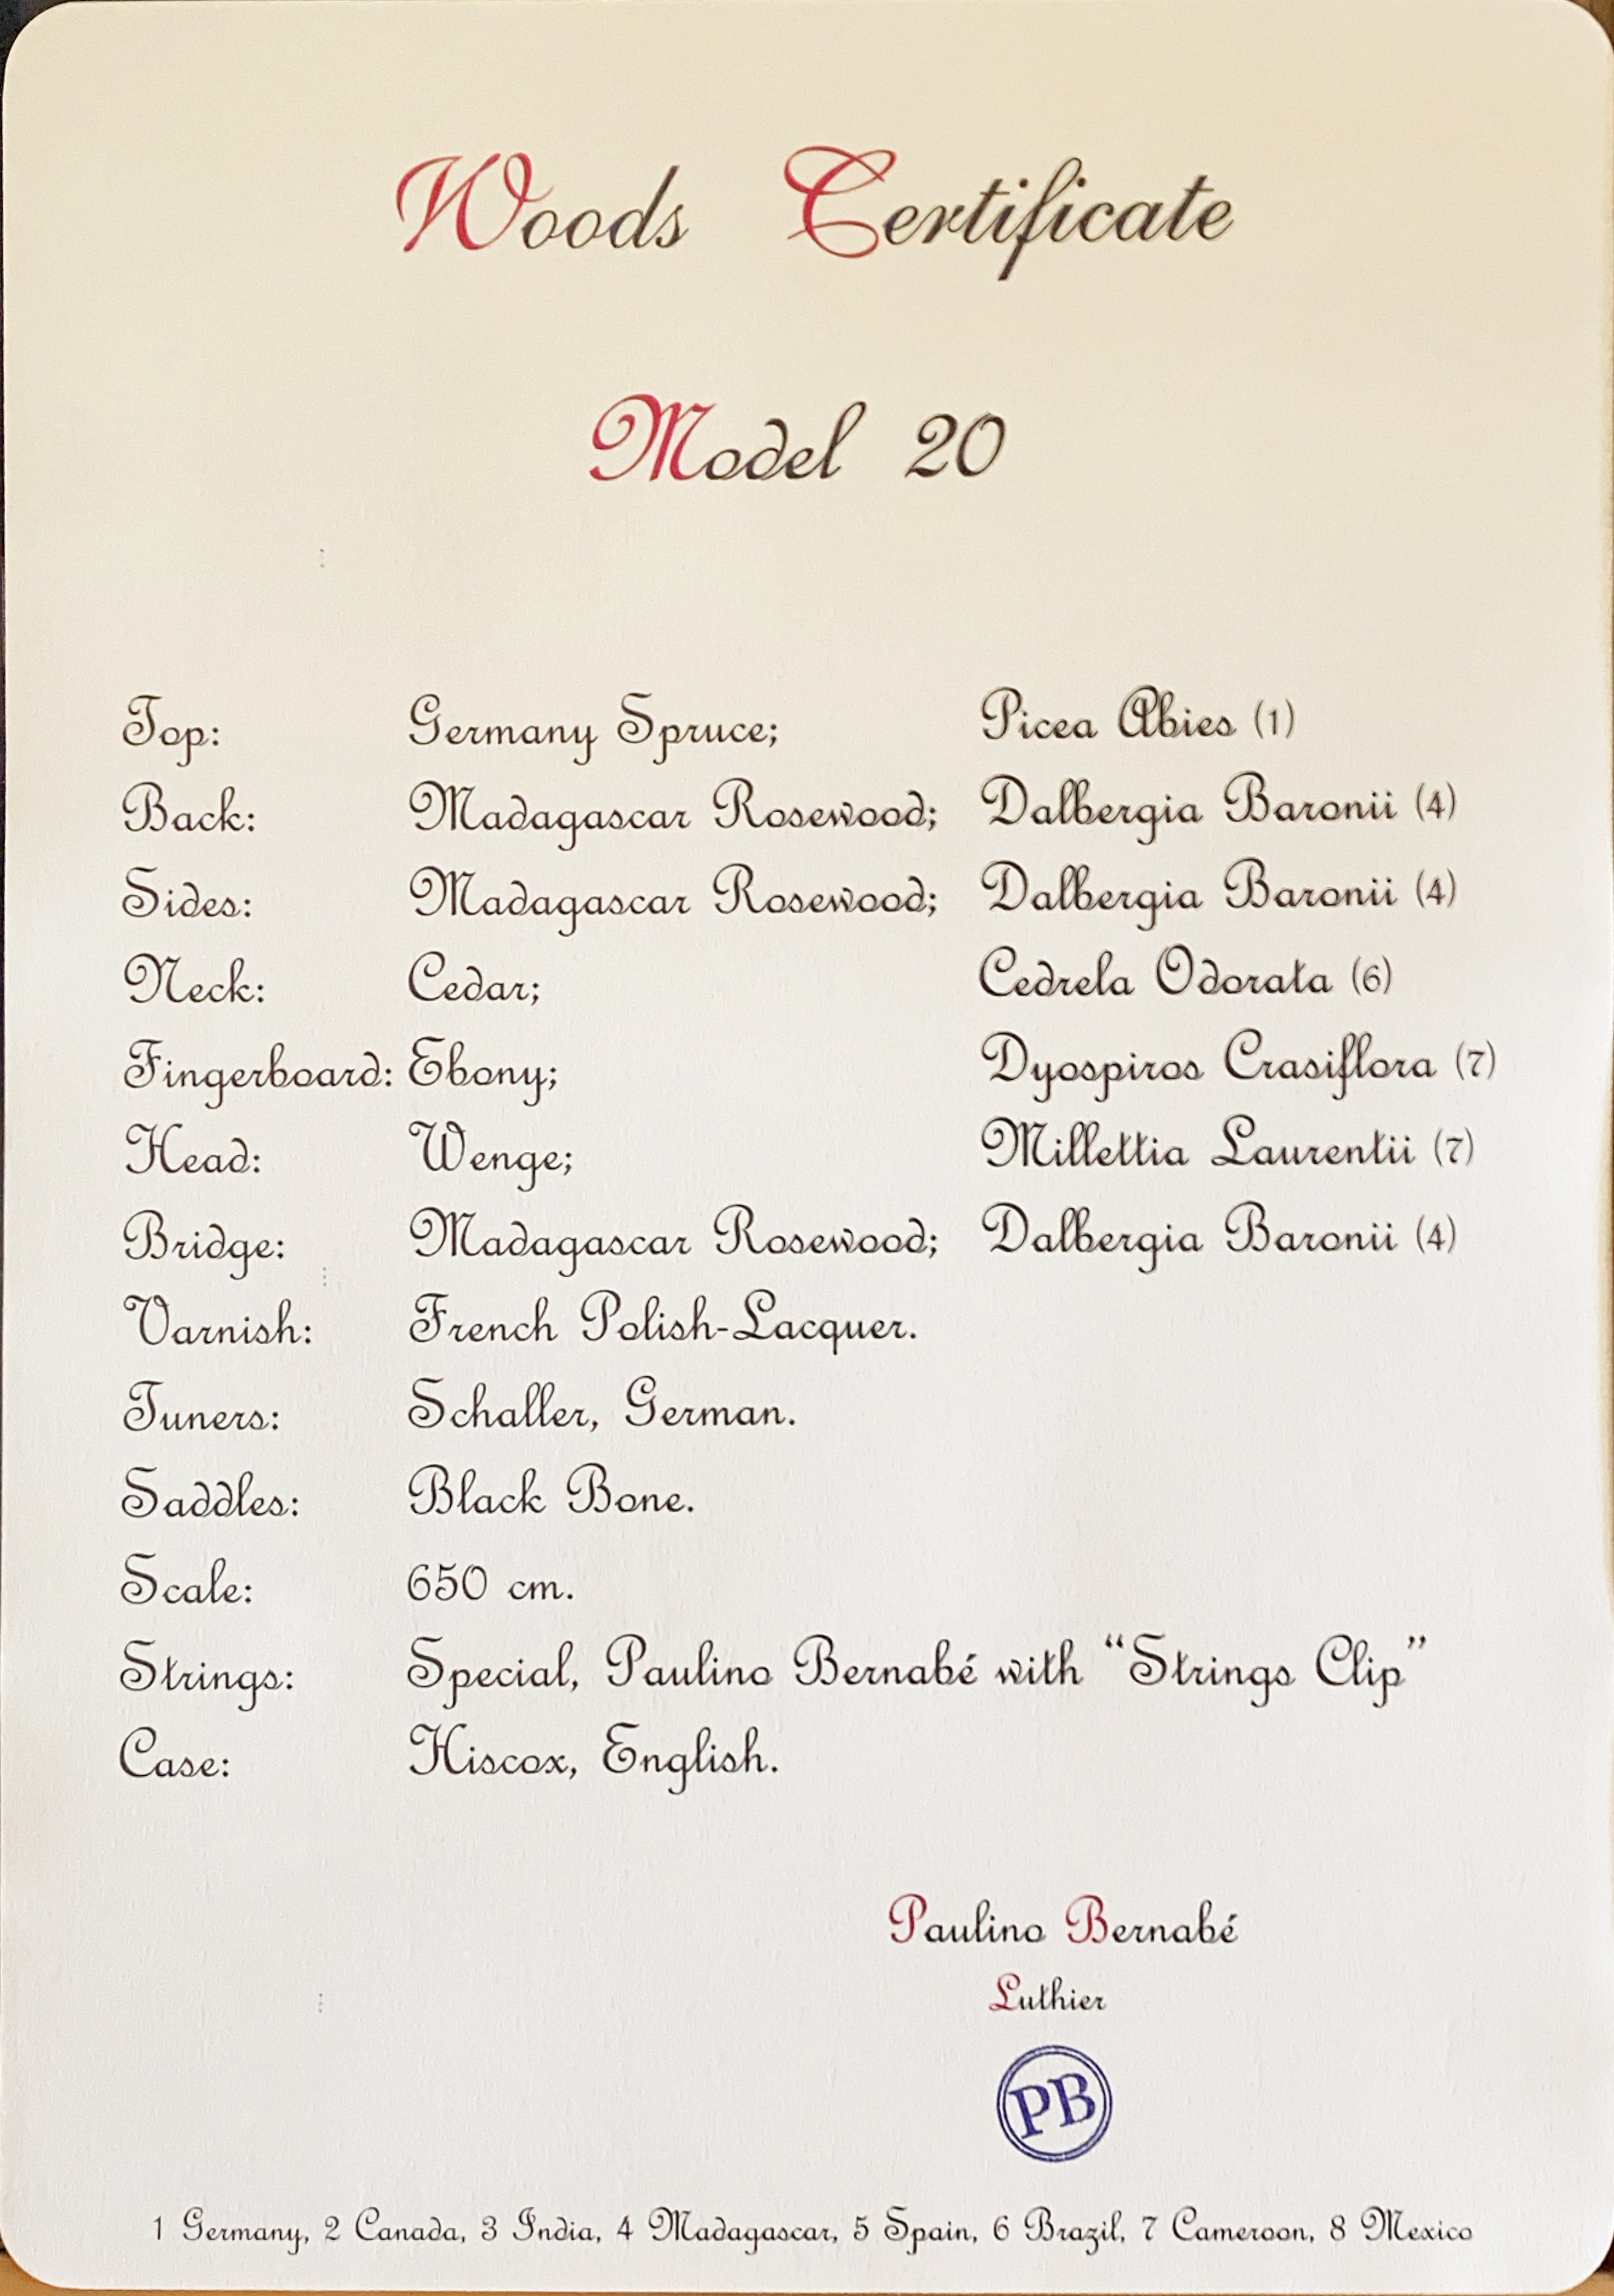 Woods Certificate
Model 20
Top: Germany Spruce; Picea Abies (1)
Back: Madagascar Rosewood; Dalbergia Baronii (4)
Sides: Madagascar Rosewood; Dalbergia Baronii (4)
Neck: Cedar; Cedrela Odorata (6)
Fingerboard: Ebony; Dyospiros Crasiflora (7)
Head: Wenge; Millettia Laurentii (7)
Bridge: Madagascar Rosewood; Dalbergia Baronii (4)
Varnish: French Polish-Lacquer.
Tuners: Schaller, German.
Saddles: Black Bone.
Scale: 650 cm.
Strings: Special, Paulino Bernabé with “Strings Clip”
Case: Hiscox, English.
Paulino Bernabé
Luthier
PB
1 Germany, 2 Canada, 3 India, 4 Madagascar, 5 Spain, 6 Brazil, 7 Cameroon, 8 Mexico